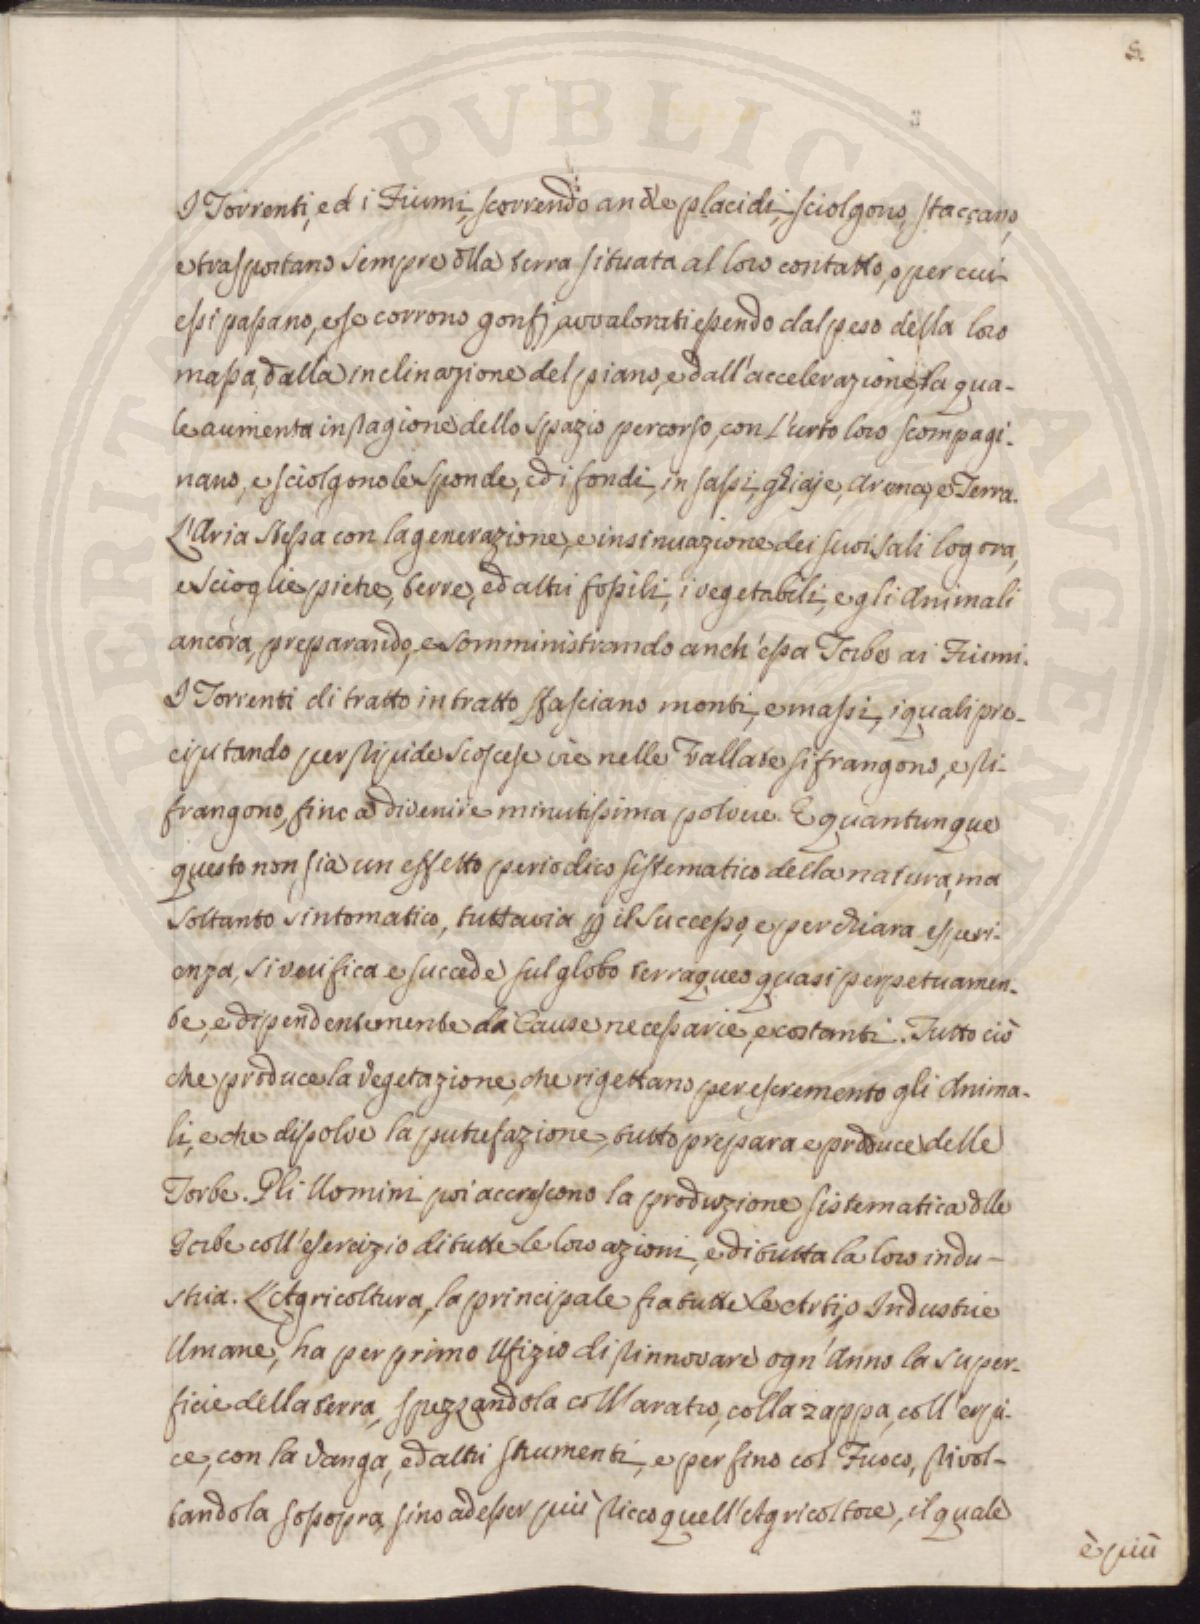 PERITAT PVBLIC AVGEND
5.
3
I Torrenti, ed i Fiumi, scorrendo anche placidi, sciolgono, staccano,
e trasportano sempre dlla terra situata al loro contatto, o per cui
essi passano, e se corrono gonfj, avvalorati essendo dal peso della loro
massa, dalla inclinazione del piano, e dall'accelerazione, la qua-
le aumenta in ragione dello spazio percorso, con l'urto loro scompagi-
nano, e sciolgono le sponde, ed i fondi, in sassi, ghiaje, Arene, e Terra.
L'Aria stessa con la generazione, e insinuazione dei suoi sali logora,
e scioglie pietre, terre, ed altri fossili, i vegetabili, e gli Animali
ancora, preparando, e somministrando anch'essa Torbe ai Fiumi.
I Torrenti di tratto in tratto sfasciano monti, e massi, i quali pre-
cipitando per ripide scoscese vie nelle Vallate si frangono, e ri-
frangono, fino a divenire minutissima polvere. E quantunque
questo non sia un effetto periodico sistematico della natura, ma
soltanto sintomatico, tuttavia p il successo, e per chiara esperi-
enza, si verifica e succede sul globo terraqueo quasi perpetuamen-
te, e dipendentemente da Cause necessarie, e costanti. Tutto ciò
che produce la vegetazione, che rigettano per escremento gli Anima-
li, e che dissolve la putrefazione, tutto prepara e produce delle
Torbe. Gli Uomini poi accrescono la produzione sistematica dlle
Torbe coll'esercizio di tutte le loro azioni, e di tutta la loro indu-
stria. L'Agricoltura, la principale fra tutte le Arti, o Industrie
Umane, ha per primo Uffizio di rinnovare ogn'Anno la super-
ficie della terra, spezzandola coll'aratro, colla zappa, coll'erpi-
ce, con la vanga, ed altri strumenti, e per fino col Fuoco, rivol-
tandola sossopra, sino ad esser più ricco quell'Agricoltore, il quale
è più